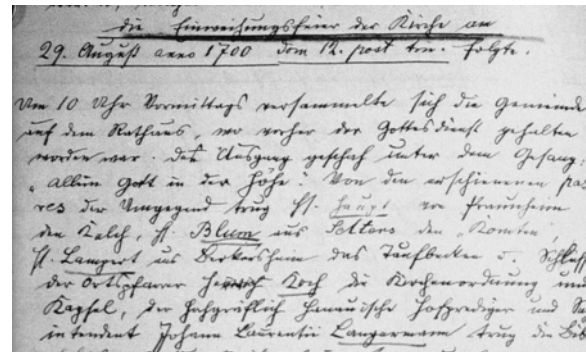 die Einweihungsfeier der Kirche am
29. August anno 1700 dom 12. post trin. folgte.
Um 10 Uhr Vormittags versammelte sich die Gemeinde
auf dem Rathaus, wo vorher der Gottesdienst gehalten
worden war. Der Ausgang geschah unter dem Gesang:
"Allein Gott in der Höhe". Von den erschienenen pas
res der Umgegend trug H. Haupt von Praunheim
den Kelch, H. Blum aus
H. Lampert aus Berkersheim das Taufbecken u. Schlüssel
der Ortspfarrer Koch die Kirchenordnung und
Kapsel, der Hochgräflich Hanauische Hofprediger und Su
intendent Johann Laurentii Langermann trug die